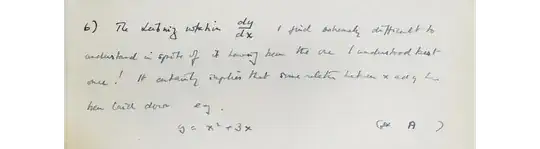 6) The Leibniz notation dy/dx I find extremely difficult to
understand in spite of it having been the one I understood best
once! It certainly implies that some relation between x and y has
been laid down e.g.
y = x² + 3x (eq A )